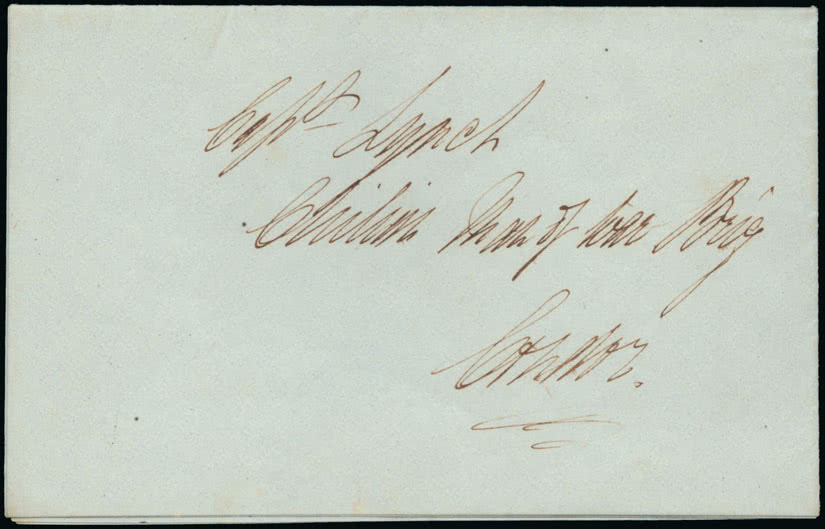 Capt Lynch
Chilian Man of War Brig
Condor.